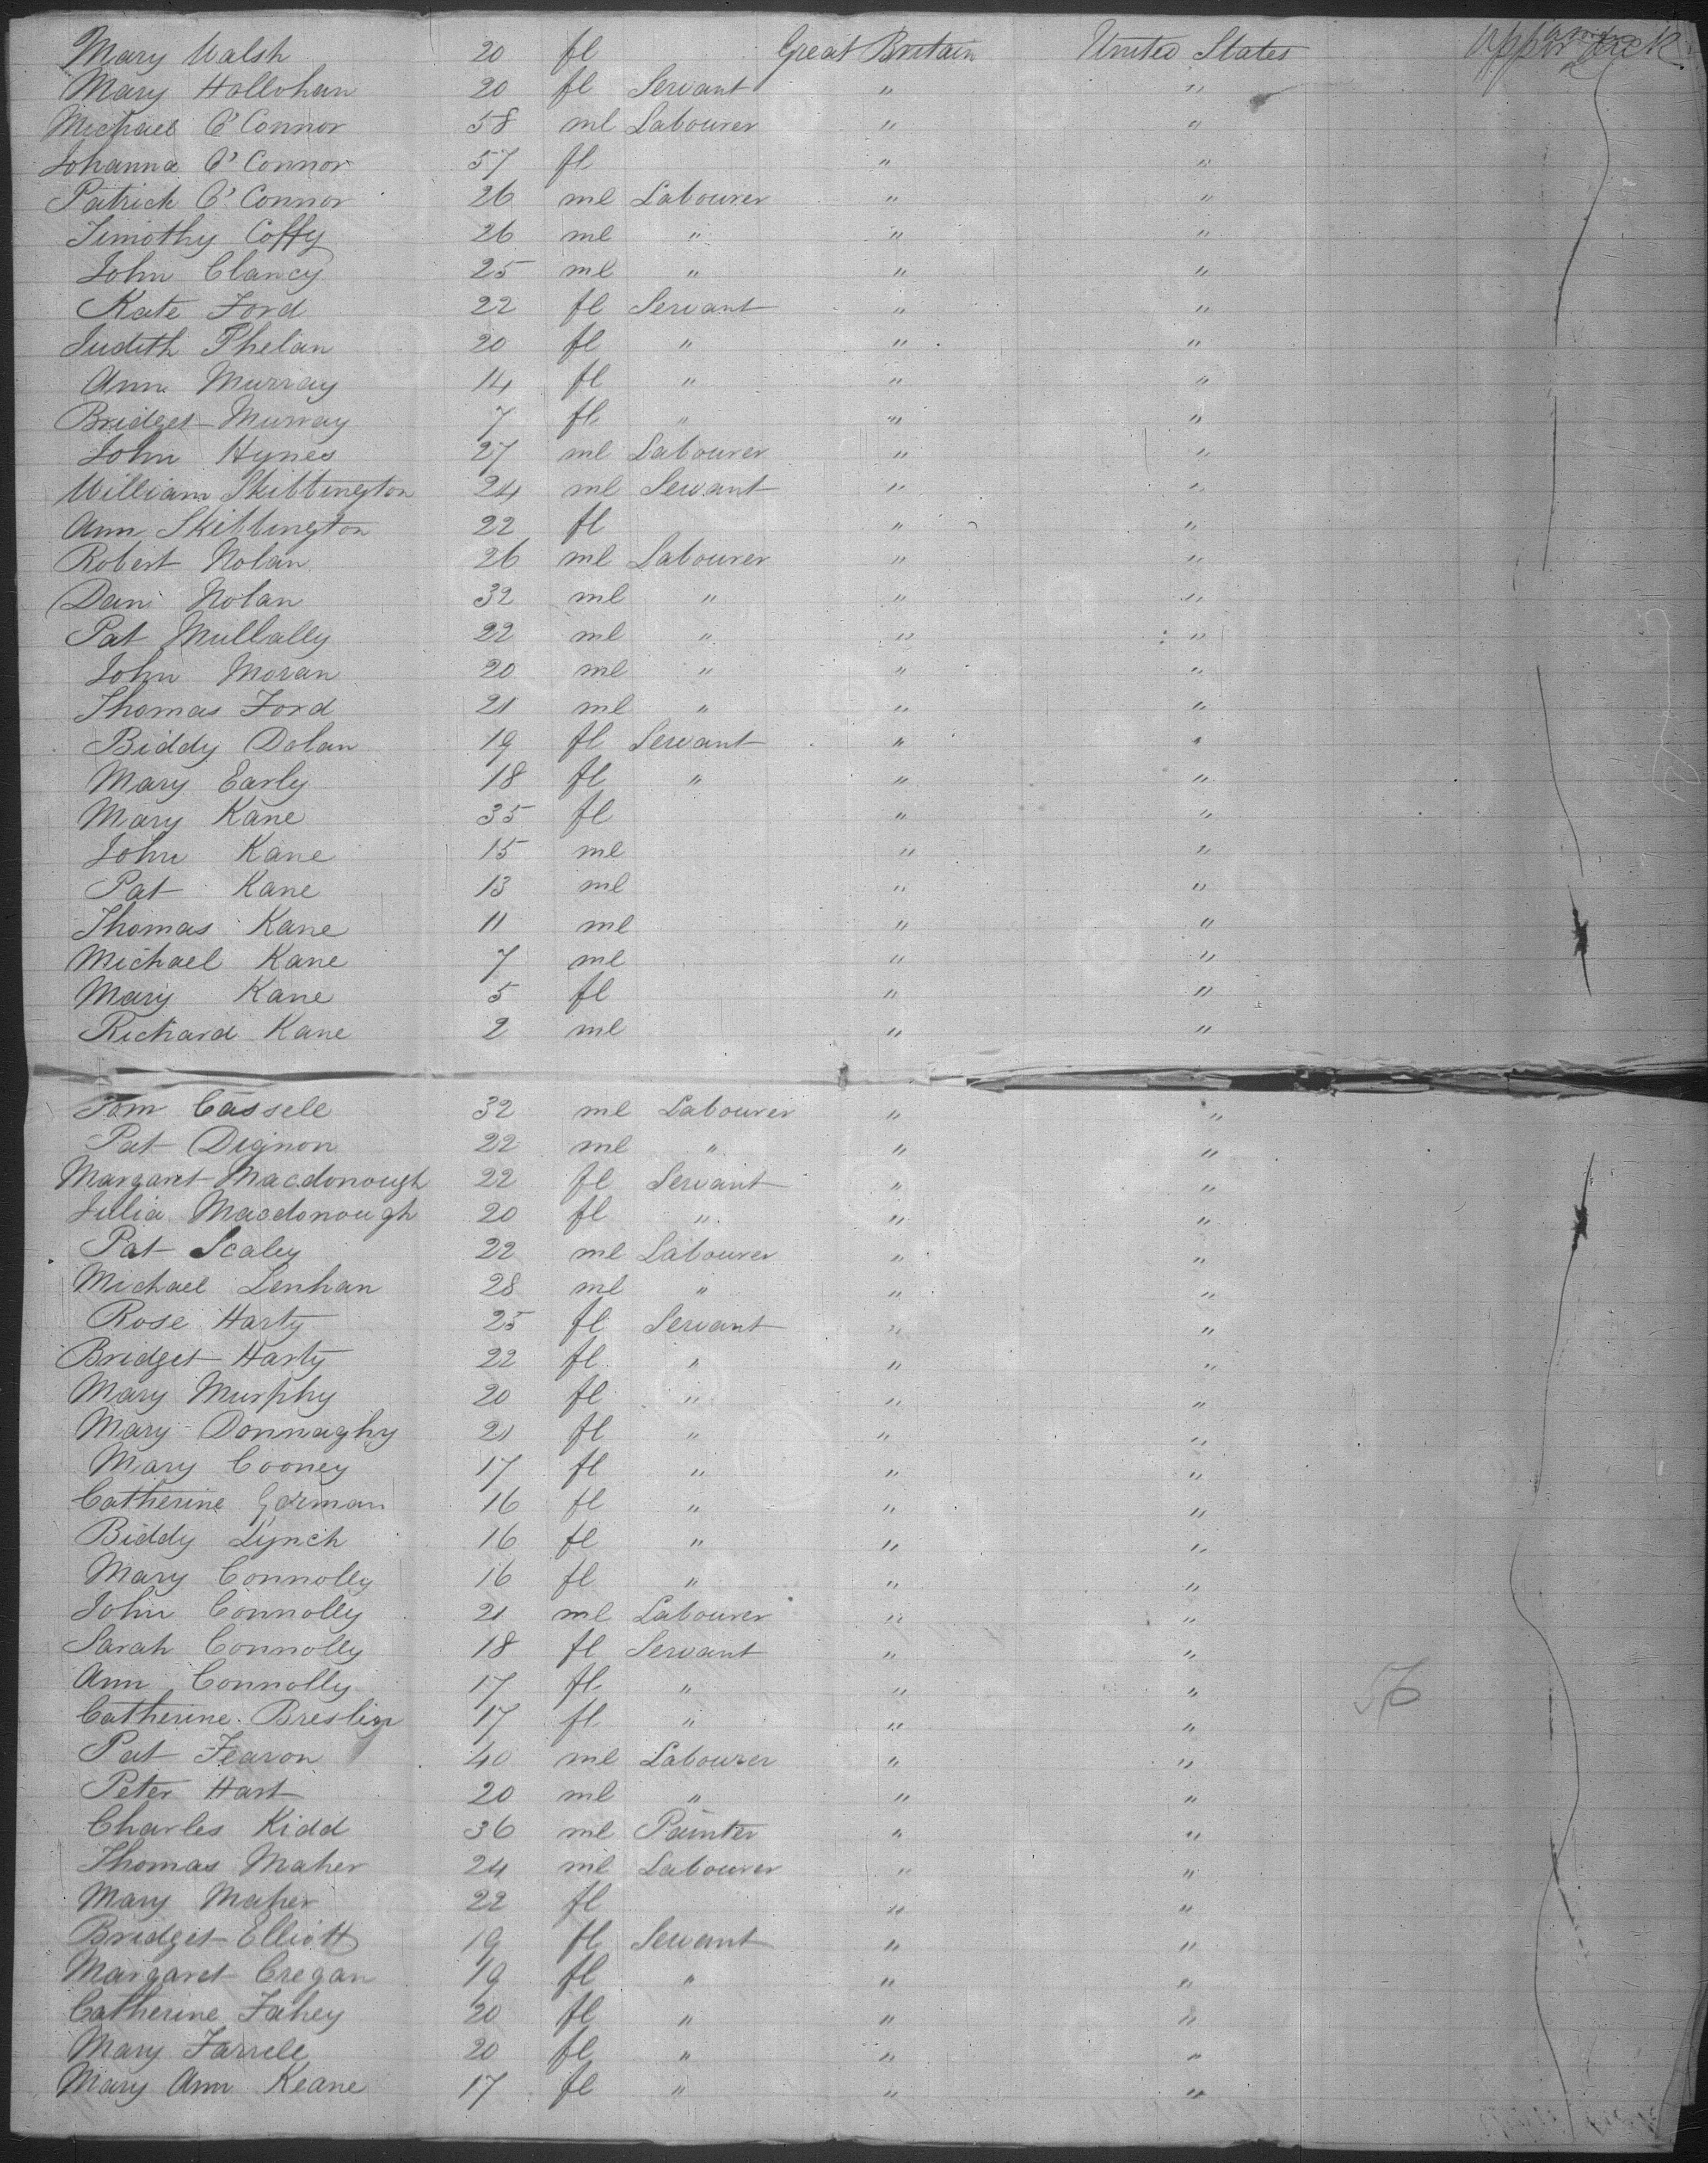 Mary Walsh 20 fl Great Britain United States
Mary Hollohan 20 fl Servant " "
Michael O'Connor 58 ml Labourer " "
Johanna O'Connor 57 fl " "
Patrick O'Connor 26 ml Labourer " "
Timothy Coffy 26 ml " " "
John Clancy 25 ml " " "
Kate Ford 22 fl Servant " "
Judith Phelan 20 fl " " "
Ann Murray 14 fl " " "
Bridget Murray 7 fl " " "
John Hynes 27 ml Labourer " "
William Skibbington 24 ml Servant " "
Ann Skibbington 22 fl " "
Robert Nolan 26 ml Labourer " "
Dan Nolan 32 ml " " "
Pat Mullally 22 ml " " "
John Moran 20 ml " " "
Thomas Ford 21 ml " " "
Biddy Dolan 19 fl Servant " "
Mary Early 18 fl " " "
Mary Kane 35 fl " "
John Kane 15 ml " "
Pat Kane 13 ml " "
Thomas Kane 11 ml " "
Michael Kane 7 ml " "
Mary Kane 5 fl " "
Richard Kane 2 ml " "
Tom Cassele 32 ml Labourer " "
Pat Dignon 22 ml " " "
Margaret Macdonough 22 fl Servant " "
Julia Macdonough 20 fl " " "
Pat Scaley 22 ml Labourer " "
Michael Lenhan 28 ml " " "
Rose Harty 25 fl Servant " "
Bridget Harty 22 fl " " "
Mary Murphy 20 fl " " "
Mary Donnaghy 21 fl " " "
Mary Cooney 17 fl " " "
Catherine Gorman 16 fl " " "
Biddy Lynch 16 fl " " "
Mary Connolly 16 fl " " "
John Connolly 21 ml Labourer " "
Sarah Connolly 18 fl Servant " "
Ann Connolly 17 fl " " "
Catherine Breslin 17 fl " " "
Pat Fearon 40 ml Labourer " "
Peter Hart 20 ml " " "
Charles Kidd 36 ml Painter " "
Thomas Maher 24 ml Labourer " "
Mary Maher 22 fl " "
Bridget Elliott 19 fl Servant " "
Margaret Cregan 19 fl " " "
Catherine Fahey 20 fl " " "
Mary Farrele 20 fl " " "
Mary Ann Keane 17 fl " " "